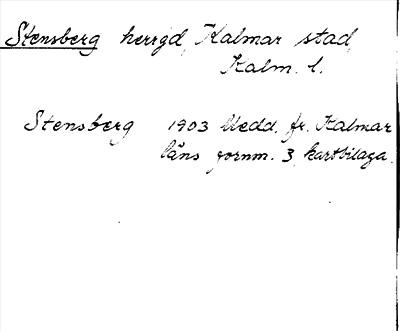 Stensberg herrgd, Kalmar stad,
Kalm. l.
Stensberg 1903 Medd. fr. Kalmar
läns fornm. 3, kartbilaga.